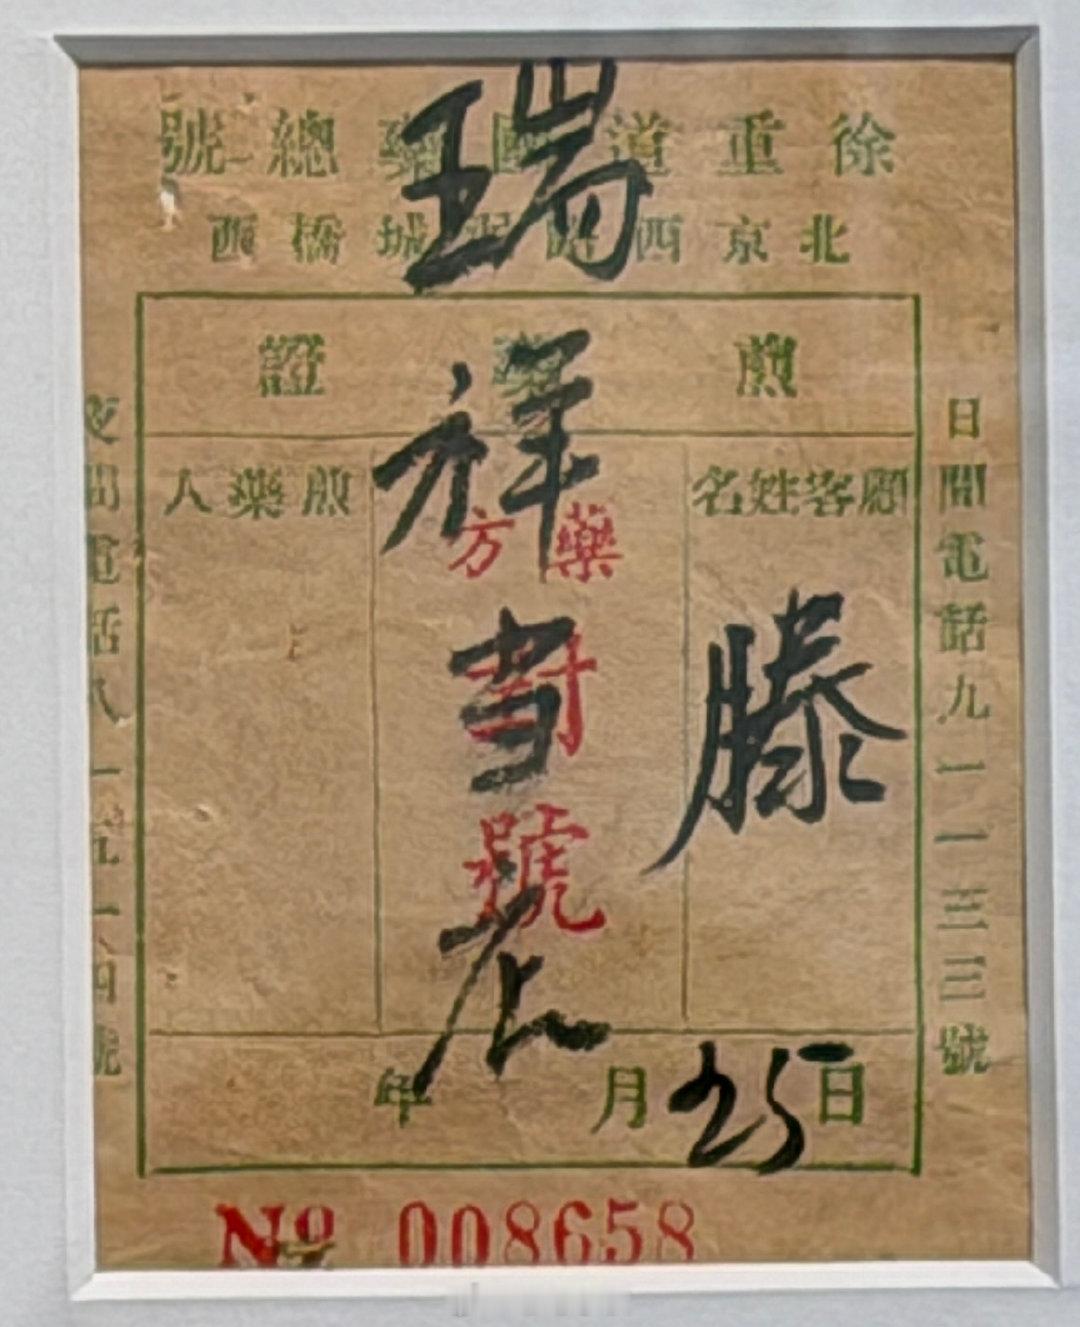 徐重道國藥總號
北京西路泥城橋西
煎藥證
顧客姓名
滕
藥方對號
瑞祥当店
煎藥人
年 月 25 日
日間電話九一一三三號
夜間電話八一
№ 008658